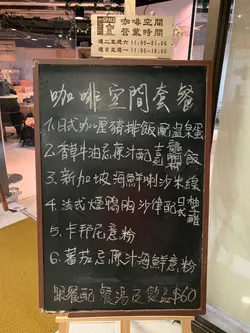 咖啡空間
營業時間
週二至週六 11:00-21:00
週日 11:00-18:00
咖啡空間套餐
1.日式咖喱豬排飯配溫泉蛋
2.香草牛油忌廉汁配 飯
3.新加坡海鮮喇沙米線
4.法式煙鴨肉沙律配日式柚子醋
5.卡邦尼意粉
6.蕃茄忌廉汁海鮮意粉
跟餐配 餐湯及飲品$60